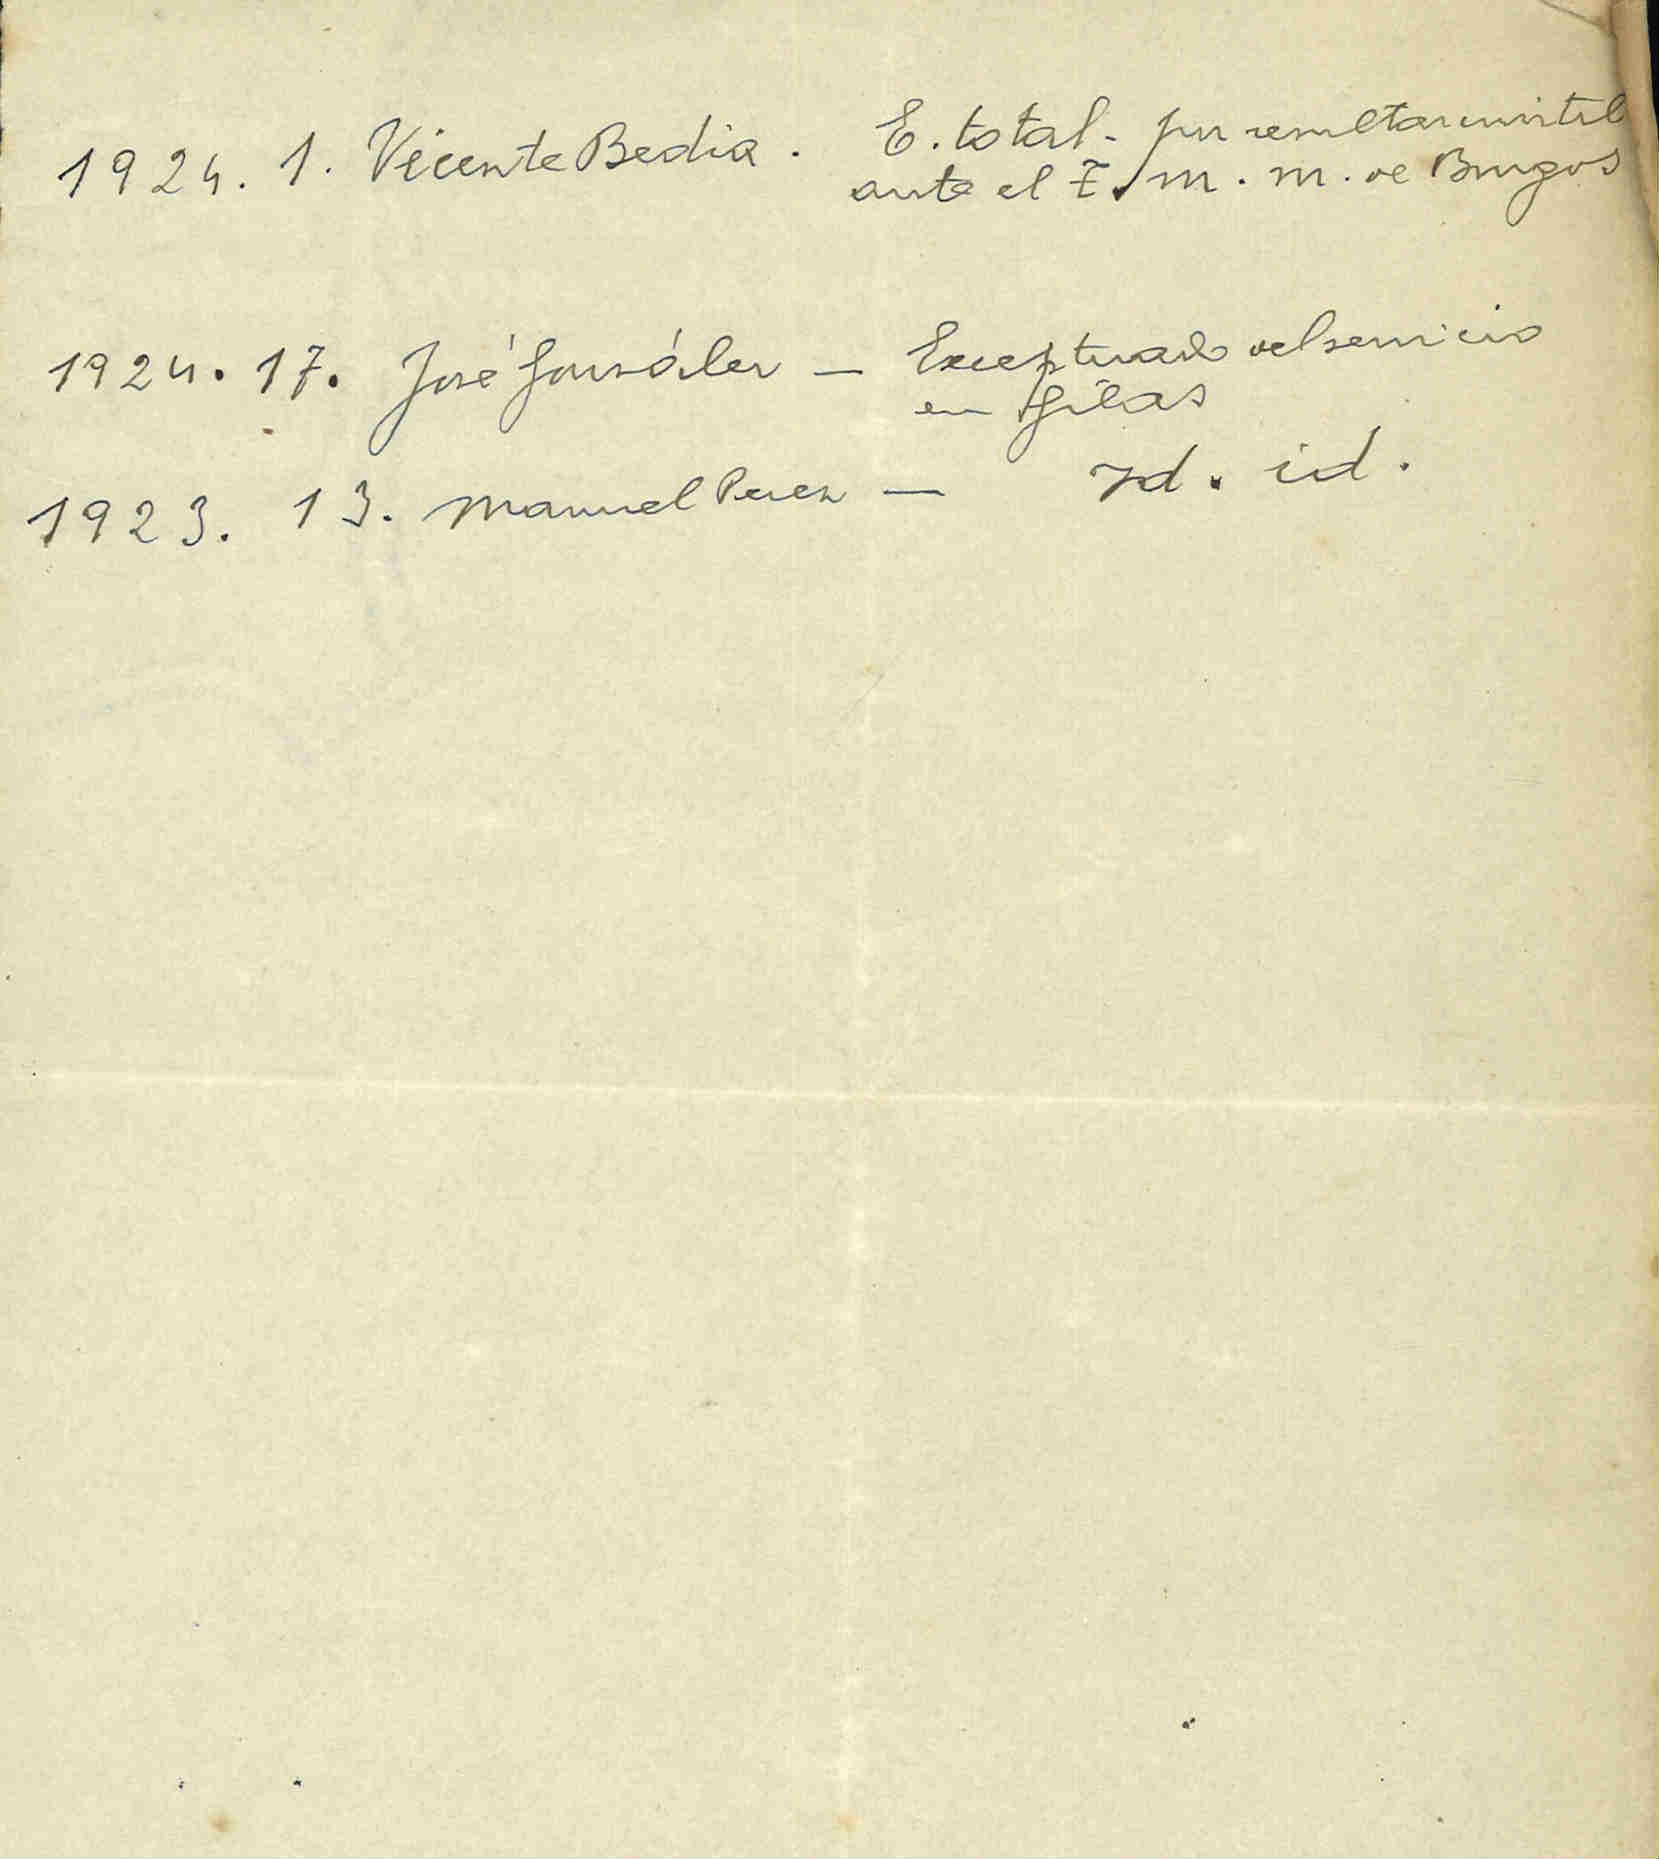 1924. 1. Vicente Bedia. E. total - por resultar inutil
ante el T. M. M. de Burgos
1924. 17. José González — Exceptuado del servicio
en filas
1923. 13. Manuel Perez — Id. id.